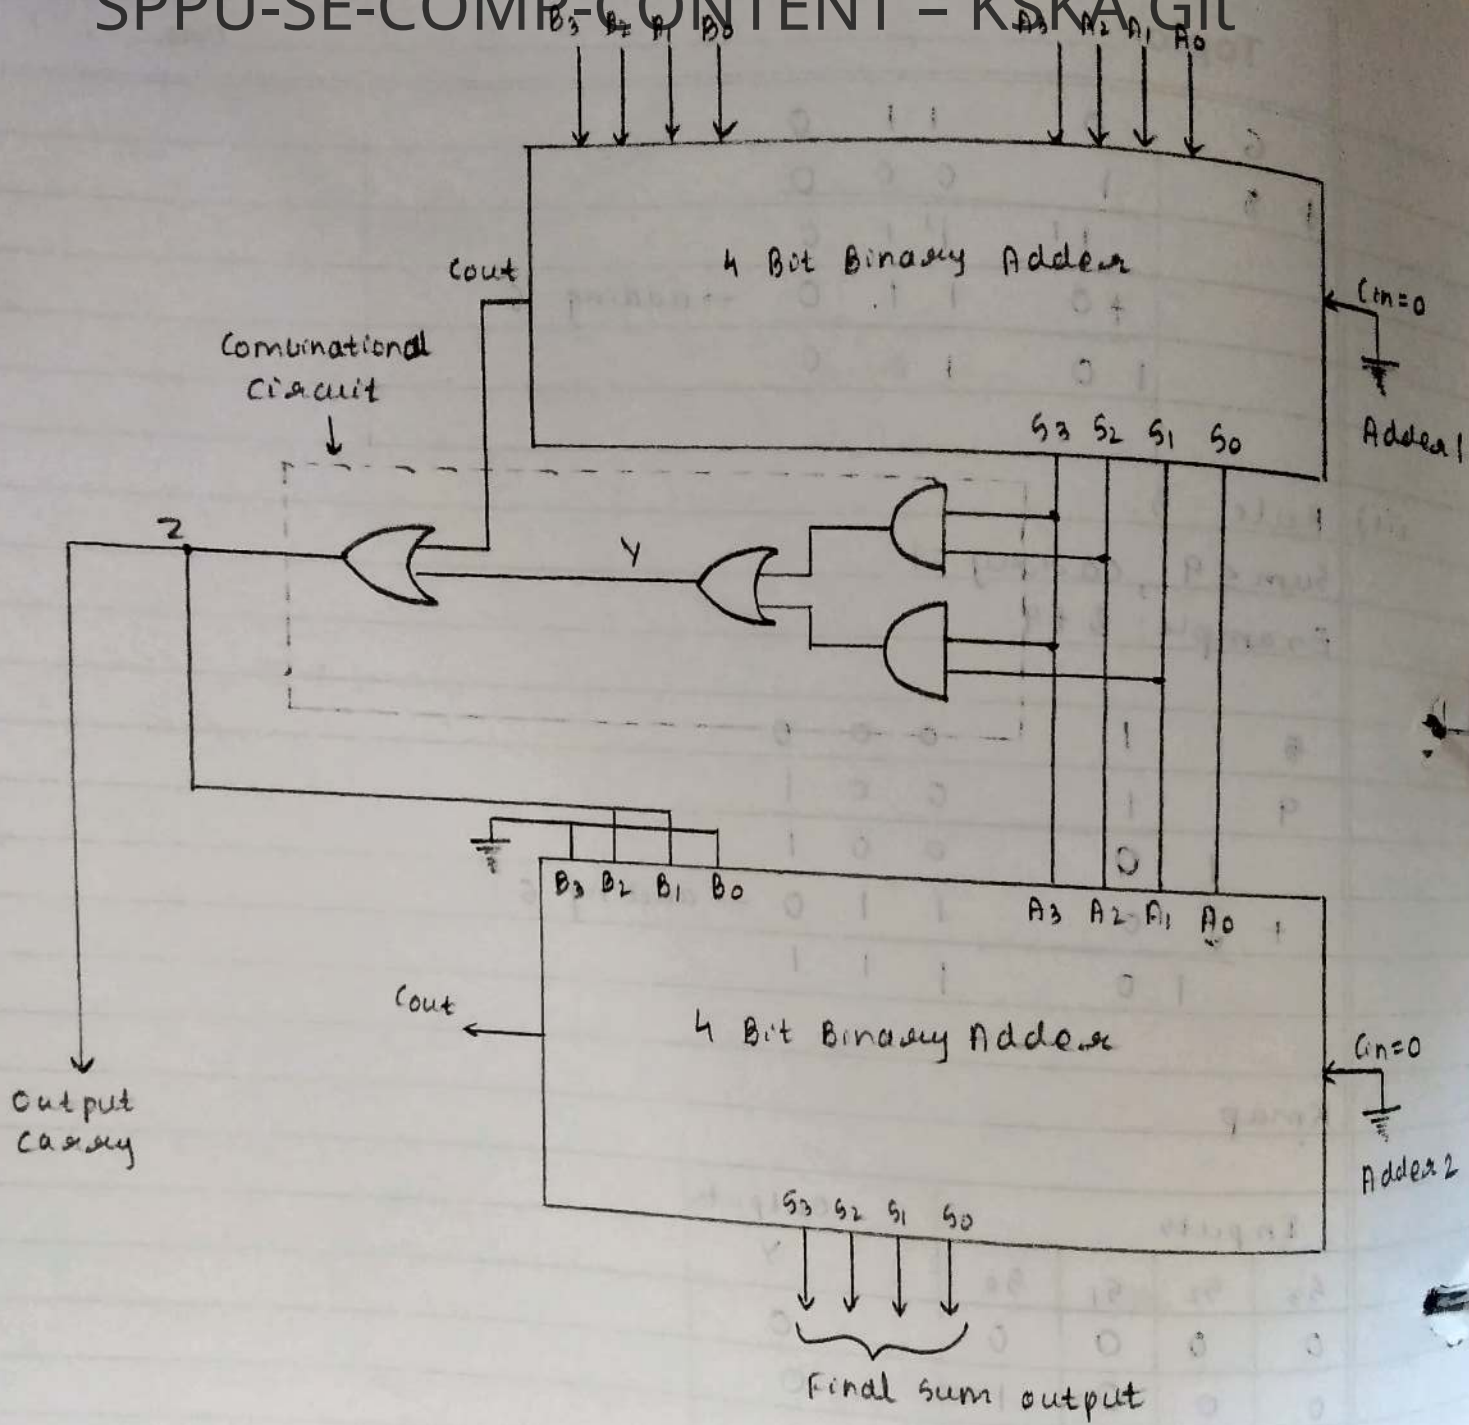 SPPU-SE-COMP-CONTENT – KSKA Git
B3 B2 A1 B0 A3 A2 A1 A0
4 Bit Binary Adder
Cout
Cin=0
Combinational
Circuit
Adder1
S3 S2 S1 S0
Z
Y
B3 B2 B1 B0
A3 A2 A1 A0
Cout
4 Bit Binary Adder
Cin=0
Output
Carry
Adder2
S3 S2 S1 S0
Final sum output